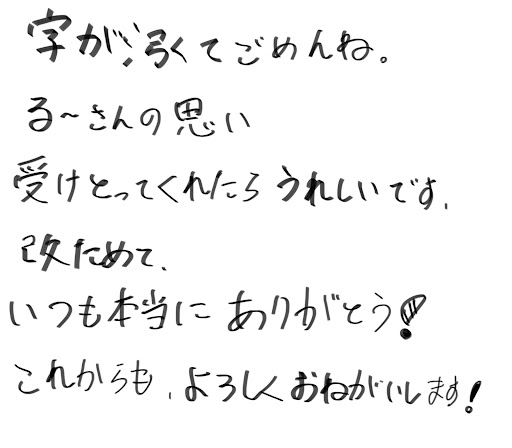 字が汚くてごめんね。
る〜さんの思い
受けとってくれたら うれしいです。
改ためて、
いつも本当に ありがとう!
これからも、よろしくおねがいします!